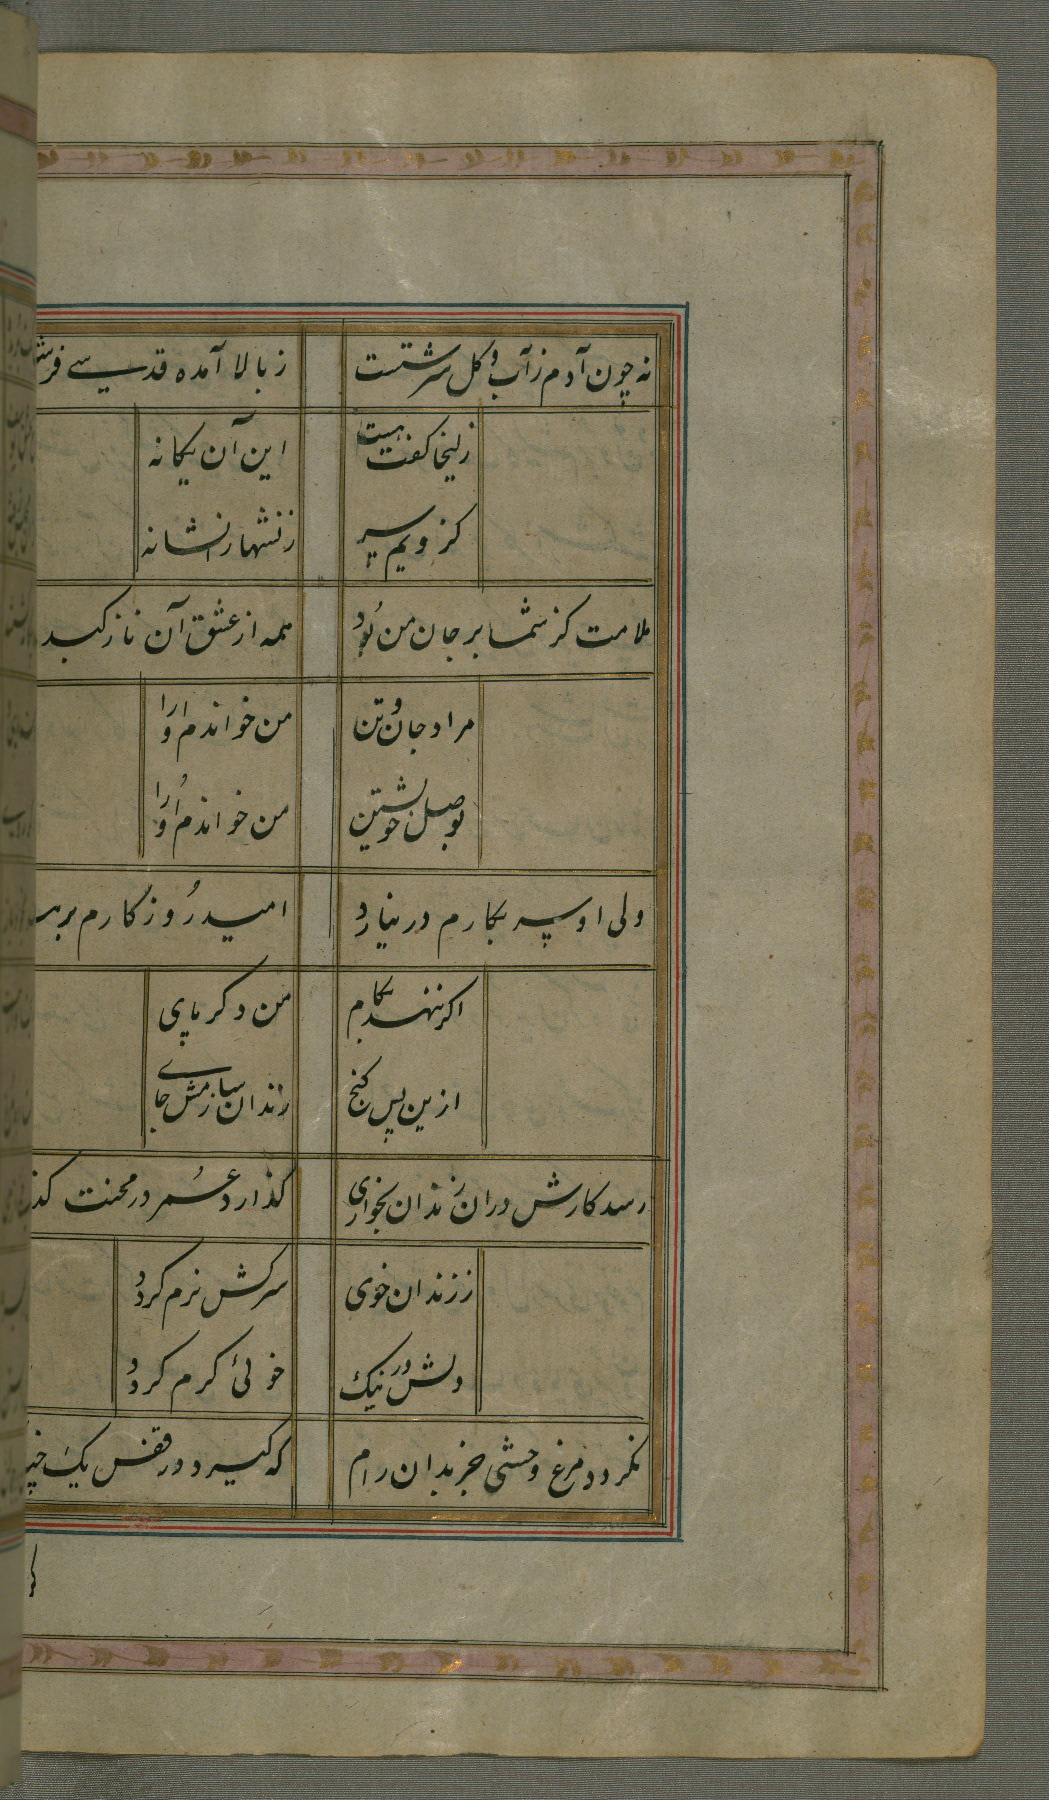 نه چون آدم ز آب و کل سرشتست ز بالا آمده قدسی
زلیخا کفت هست این آن یکانه
کزویم سر زنشها را نشانه
ملامت کز شما بر جان من بود همه از عشق آن نازکبد
مراد جان و تن من خواندم او را
بوصل خویشتن من خواندم او را
ولی او سر بکارم در نیارد امید روزکارم بر
اکر ننهد بکام من دکر پای
ازین پس کنج زندان سازمش جای
رسد کارش دران زندان بخواری کذارد عمر در محنت
ز زندان خوی سرکش نرم کردد
دلش در نیک خوئی کرم کردد
نکردد مرغ وحشی جز بدان رام که کیرد در قفس یک